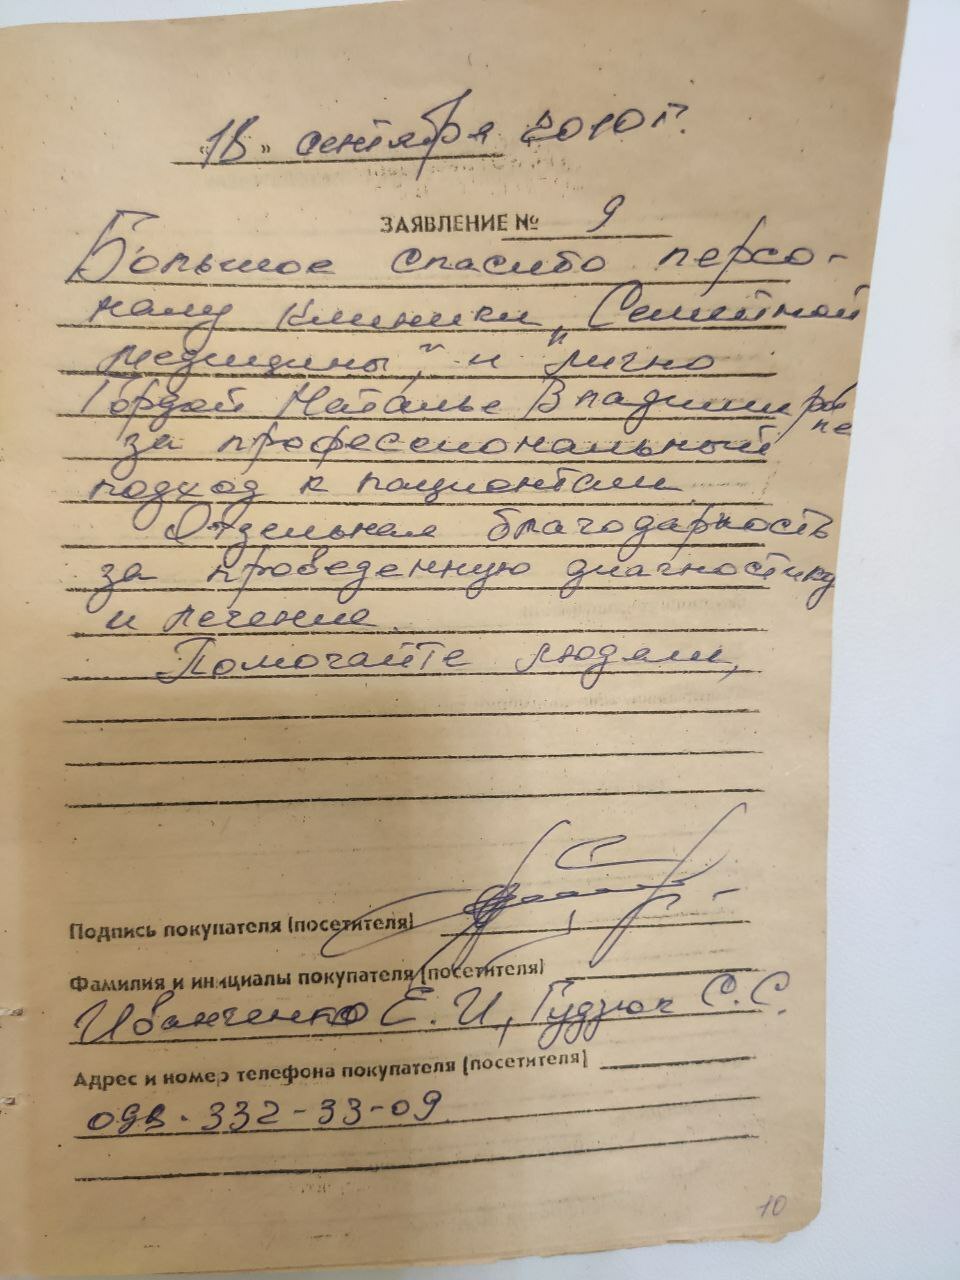 "18" сентября 2010 г.
ЗАЯВЛЕНИЕ № 9
Большое спасибо персо-
налу клиники "Семейной
медицины", и лично
Гордой Наталье Владимировне
за профессиональный
подход к пациентам.
Отдельная благодарность
за проведенную диагностику
и лечение.
Помогайте людям,
Подпись покупателя (посетителя)
Фамилия и инициалы покупателя (посетителя)
Иванченко Е. И, Гудзюк С. С.
Адрес и номер телефона покупателя (посетителя)
332-33-09
10